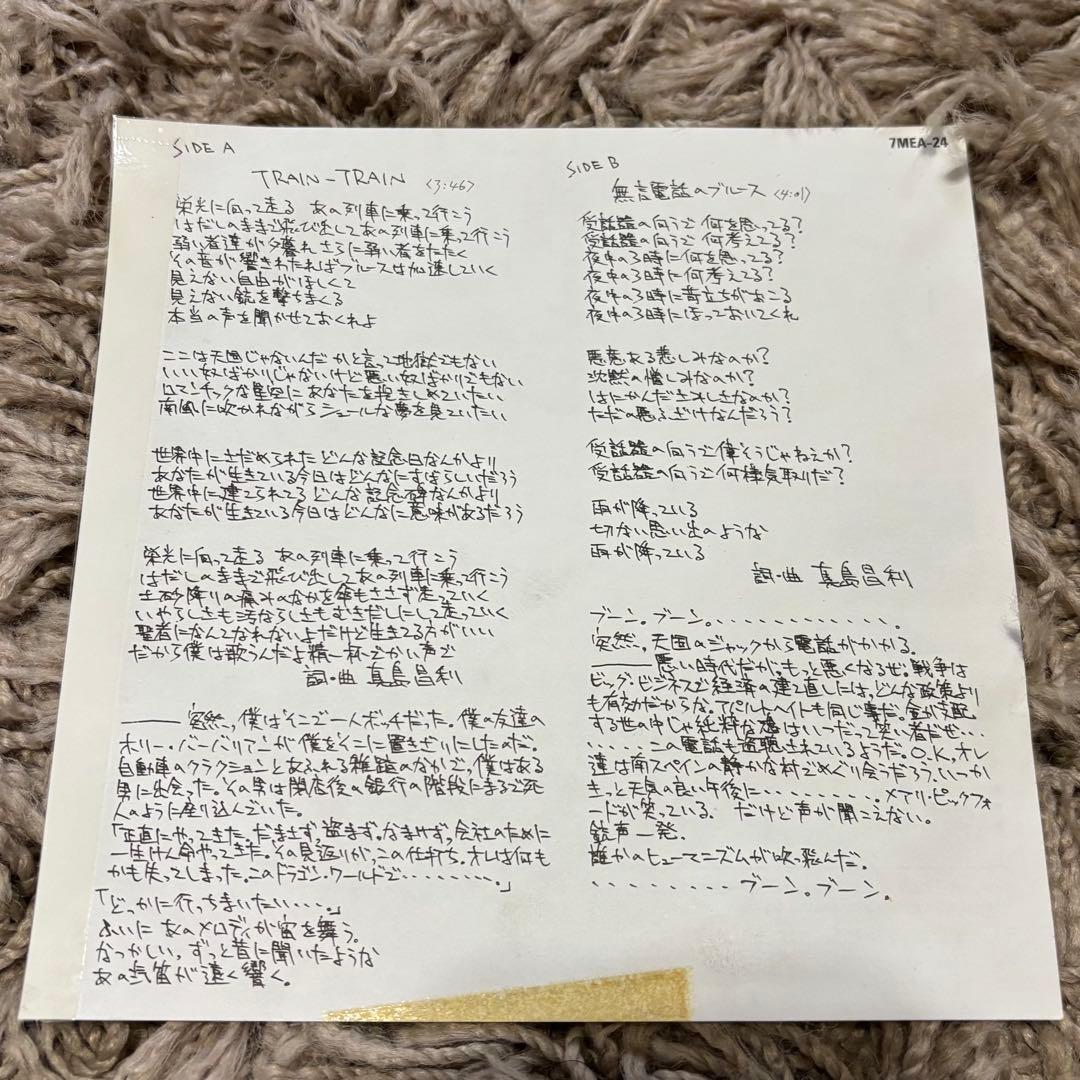 SIDE A
TRAIN-TRAIN (3:46)
栄光に向って走る あの列車に乗って行こう
はだしのままで飛び出してあの列車に乗って行こう
弱い者達が夕暮れ さらに弱い者をたたく
その音が響きわたればブルースは加速していく
見えない自由がほしくて
見えない銃を撃ちまくる
本当の声を聞かせておくれよ
ここは天国じゃないんだ かと言って地獄でもない
いい奴ばかりじゃないけど悪い奴ばかりでもない
ロマンチックな星空に あなたを抱きしめていたい
南風に吹かれながら シュールな夢を見ていたい
世界中にさだめられた どんな記念日なんかより
あなたが生きている今日はどんなにすばらしいだろう
世界中に建てられてる どんな記念碑なんかより
あなたが生きている今日はどんなに意味があるだろう
栄光に向って走る あの列車に乗って行こう
はだしのままで飛び出してあの列車に乗って行こう
土砂降りの痛みのなかを傘もささず走っていく
いやらしさも汚ならしさもむきだしにして走っていく
聖者になんてなれないよだけど生きてる方がいい
だから僕は歌うんだよ精一杯でかい声で
詞・曲 真島昌利
――突然、僕はそこで一人ボッチだった。僕の友達の
ホリー・バーバリアンが僕をそこに置きざりにしたのだ。
自動車のクラクションとあふれる雑踏のなかで、僕はある
男に出会った。その男は閉店後の銀行の階段にまるで死
人のように座り込んでいた。
「正直にやってきた。だまさず、盗まず、なまけず、会社のために
一生けん命やってきた。その見返りが、この仕打ち。オレは何も
かも失ってしまった。このドラゴン・ワールドで・・・・・・・・。」
「どっかに行っちまいたい・・・・。」
ふいに あのメロディが宙を舞う。
なつかしい、ずっと昔に聞いたような
あの汽笛が遠く響く。
7MEA-24
SIDE B
無言電話のブルース (4:01)
受話器の向うで 何を思ってる?
受話器の向うで 何考えてる?
夜中の3時に何を思ってる?
夜中の3時に 何考えてる?
夜中の3時に苛立ちがおこる
夜中の3時にほっておいてくれ
悪意ある悲しみなのか?
沈黙の憎しみなのか?
はにかんださみしさなのか?
ただの悪ふざけなんだろう?
受話器の向うで偉そうじゃねえか?
受話器の向うで何様気取りだ?
雨が降っている
切ない思い出のような
雨が降っている
詞・曲 真島昌利
ブーン。ブーン。・・・・・・・・・・・・・。
突然、天国のジャックから電話がかかる。
――悪い時代だが、もっと悪くなるぜ。戦争は
ビッグ・ビジネスで経済の建て直しには、どんな政策より
も有効だからな。アパルトヘイトも同じ事だ。金が支配
する世の中じゃ純粋な魂はいつだって笑い者だぜ・・・
・・・・・この電話も盗聴されているようだ。O.K. オレ
達は南スペインの静かな村でめぐり会うだろう、いつか
きっと天気の良い午後に・・・・・・・・・。メアリ・ピックフォ
ードが笑っている。 だけど声が聞こえない。
銃声一発。
誰かのヒューマニズムが吹っ飛んだ。
・・・・・・・・ブーン。ブーン。